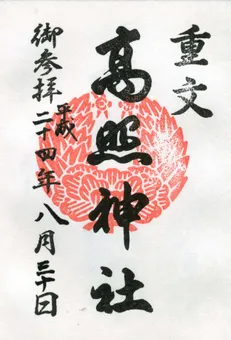 重文
高照神社
御参拝
平成二十四年八月三十日